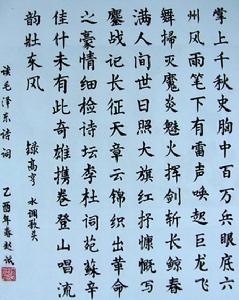 掌上千秋史胸中百万兵眼底六
州风雨笔下有雷声唤起巨龙飞
舞掃灭魔炎魅火挥剑斩长鲸春
满人间世日照大旗红抒慷慨写
鏖战记长征天章云锦织出革命
之豪情细检诗坛李杜词苑苏辛
佳什未有此奇雄携卷登山唱流
韵壮东风 录高亨 水调歌头
读毛泽东诗词 乙酉年春赵诚